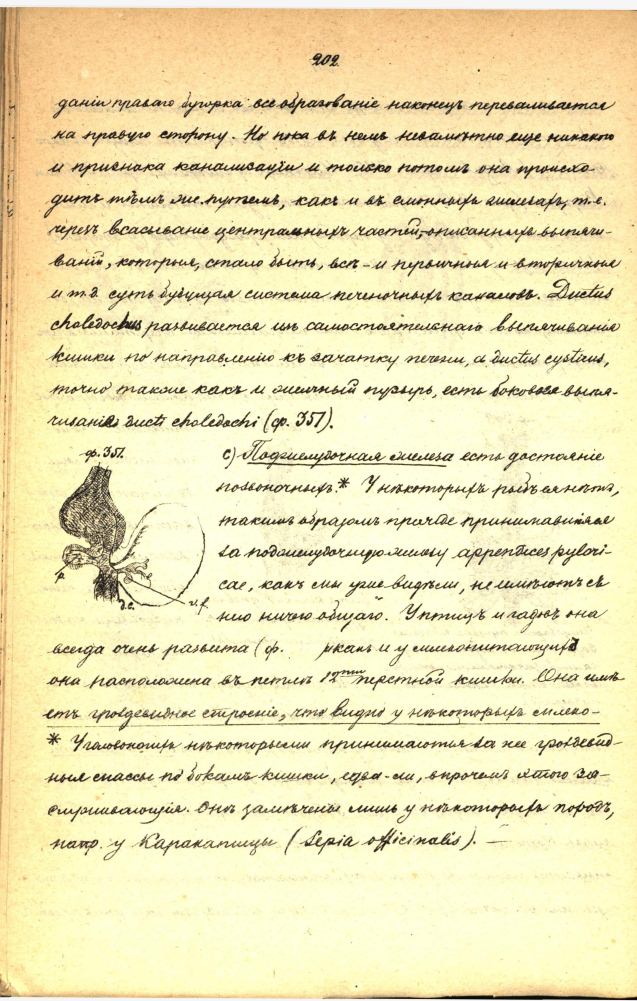 202
даніи праваго бугорка все образованіе наконецъ переваливается
на правую сторону. Но пока въ немъ незамѣтно еще никакого
и признака канализаціи и только потомъ она происхо-
дитъ тѣмъ же путемъ, какъ и въ слюнныхъ железахъ, т.е.
черезъ всасываніе центральныхъ частей, описанныхъ выпячи-
ваній, которыя, стало быть, всѣ - и первичныя и вторичныя
и т.д. суть будущая система печеночныхъ каналовъ. Ductus
choledochus развивается изъ самостоятельнаго выпячиванія
кишки по направленію къ зачатку печени, а ductus cysticus,
точно также какъ и желчный пузырь, есть боковое выпя-
чиваніе ducti choledochi (ф. 351).
ф. 351.
с) Поджелудочная железа есть достояніе
позвоночныхъ.* У нѣкоторыхъ рыбъ ея нѣтъ,
такимъ образомъ прежде принимавшіяся
за поджелудочную железу appendices pylori-
cae, какъ мы уже видѣли, не имѣютъ съ
нею ничего общаго. У птицъ и гадовъ она
p.
d.c.
v.f.
всегда очень развита (ф. какъ и у млекопитающихъ
она расположена въ петлѣ 12ти перстной кишки. Она имѣ-
етъ гроздевидное строеніе, что видно у нѣкоторыхъ млеко-
* У головоногихъ нѣкоторыми принимаются за нее гроздевид-
ныя массы по бокамъ кишки, едва-ли, впрочемъ этого за-
служивающія. Онѣ замѣчены лишь у нѣкоторыхъ породъ,
напр. у Каракатицы (Sepia officinalis). —